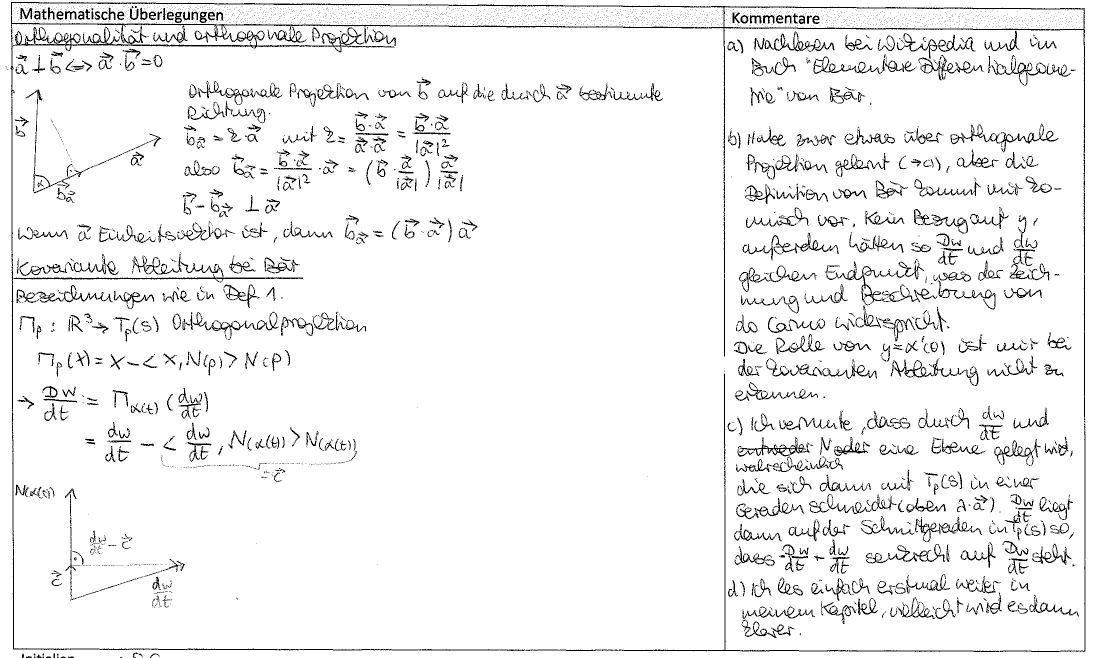 Mathematische Überlegungen
Orthogonalität und orthogonale Projektion
a⃗ ⊥ b⃗ ⇔ a⃗ · b⃗ = 0
Orthogonale Projektion von b⃗ auf die durch a⃗ bestimmte
Richtung.
b⃗_a⃗ = k · a⃗ mit k = (b⃗ · a⃗)/(a⃗ · a⃗) = (b⃗ · a⃗)/|a⃗|²
also b⃗_a⃗ = (b⃗ · a⃗)/|a⃗|² · a⃗ = (b⃗ · a⃗/|a⃗|) a⃗/|a⃗|
b⃗ - b⃗_a⃗ ⊥ a⃗
b⃗
a⃗
α
b⃗_a⃗
Wenn a⃗ Einheitsvektor ist, dann b⃗_a⃗ = (b⃗ · a⃗) a⃗
Kovariante Ableitung bei Bär
Bezeichnungen wie in Def 1.
Π_p : ℝ³ → T_p(S) Orthogonalprojektion
Π_p(X) = X - < X, N(p) > N(p)
→ Dw/dt := Π_α(t) (dw/dt)
= dw/dt - < dw/dt, N(α(t)) > N(α(t))
= c⃗
N(α(t))
dw/dt - c⃗
c⃗
dw/dt
Kommentare
a) Nachlesen bei Wikipedia und im
Buch "Elementare Differentialgeome-
trie" von Bär.
b) Habe zwar etwas über orthogonale
Projektion gelernt (→a), aber die
Definition von Bär kommt mir ko-
misch vor. Kein Bezug auf y,
außerdem hätten so Dw/dt und dw/dt
gleichen Endpunkt, was der Zeich-
nung und Beschreibung von
do Carmo widerspricht.
Die Rolle von y=α'(0) ist mir bei
der kovarianten Ableitung nicht zu
erkennen.
c) Ich vermute, dass durch dw/dt und
entweder N oder eine Ebene gelegt wird,
wahrscheinlich
die sich dann mit T_p(S) in einer
Geraden schneidet (oben λ·a⃗). Dw/dt liegt
dann auf der Schnittgeraden in T_p(S) so,
dass Dw/dt - dw/dt senkrecht auf Dw/dt steht.
d) Ich les einfach erstmal weiter in
meinem Kapitel, vielleicht wird es dann
klarer.